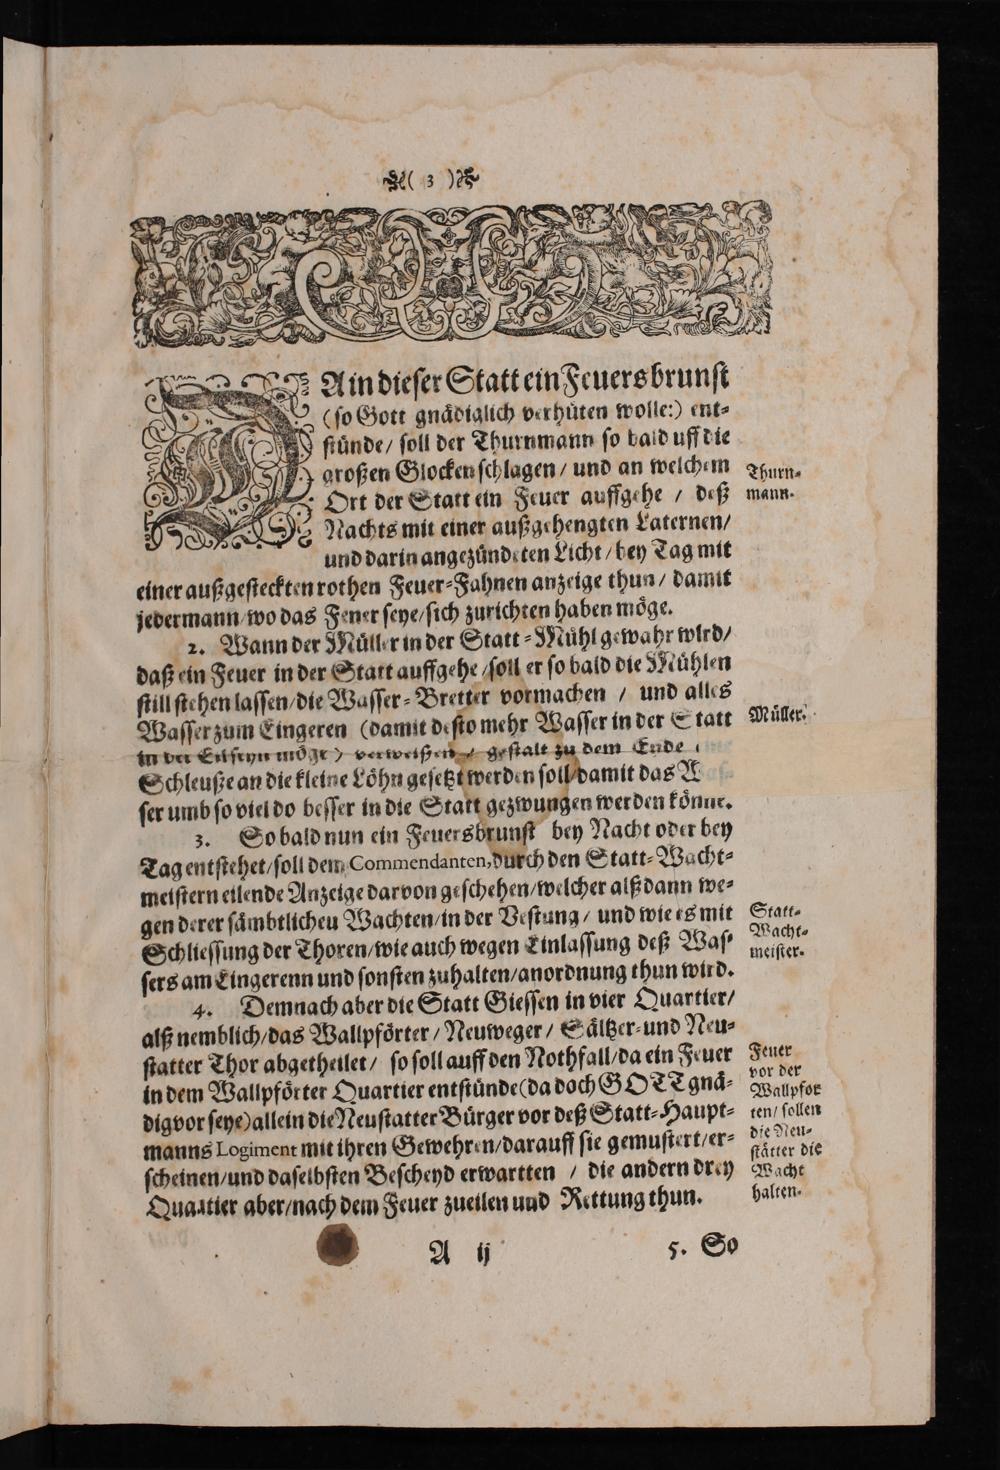 ( 3 )
DA in dieser Statt ein Feuersbrunst
(so Gott gnädiglich verhüten wolle:) ent-
stünde/ soll der Thurnmann so bald uff die
großen Glocken schlagen/ und an welchem
Ort der Statt ein Feuer auffgehe / deß
Nachts mit einer außgehengten Laternen/
und darin angezündeten Licht/ bey Tag mit
einer außgesteckten rothen Feuer-Fahnen anzeige thun/ damit
jedermann wo das Feuer seye/ sich zurichten haben möge.
Thurn-
mann.
2. Wann der Müller in der Statt-Mühl gewahr wird/
daß ein Feuer in der Statt auffgehe/ soll er so bald die Mühlen
still stehen lassen/ die Wasser-Bretter vormachen / und alles
Wasser zum Eingeren (damit desto mehr Wasser in der Statt
in der Eil seyn möge) verweißen / gestalt zu dem Ende
Schleuße an die kleine Löhn gesetzt werden soll/ damit das
ser umb so viel do besser in die Statt gezwungen werden könne.
Müller.
3. So bald nun ein Feuersbrunst bey Nacht oder bey
Tag entstehet/ soll dem Commendanten, durch den Statt-Wacht-
meistern eilende Anzeige darvon geschehen/ welcher alß dann we-
gen derer sämbtlicheu Wachten/ in der Vestung/ und wie es mit
Schliessung der Thoren/ wie auch wegen Einlassung deß Was-
sers am Eingerenn und sonsten zuhalten/ anordnung thun wird.
Statt-
Wacht-
meister.
4. Demnach aber die Statt Giessen in vier Quartier/
alß nemblich/ das Wallpförter/ Neuweger/ Sältzer- und Neu-
statter Thor abgetheilet/ so soll auff den Nothfall/ da ein Feuer
in dem Wallpförter Quartier entstünde (da doch GOTT gnä-
dig vor seye) allein die Neustatter Bürger vor deß Statt-Haupt-
manns Logiment mit ihren Gewehren/ darauff sie gemustert/ er-
scheinen/ und daselbsten Bescheyd erwartten / die andern drey
Quartier aber/ nach dem Feuer zueilen und Rettung thun.
Feuer
vor der
Wallpfor
ten/ sollen
die Neu-
stätter die
Wacht
halten.
A ij
5. So